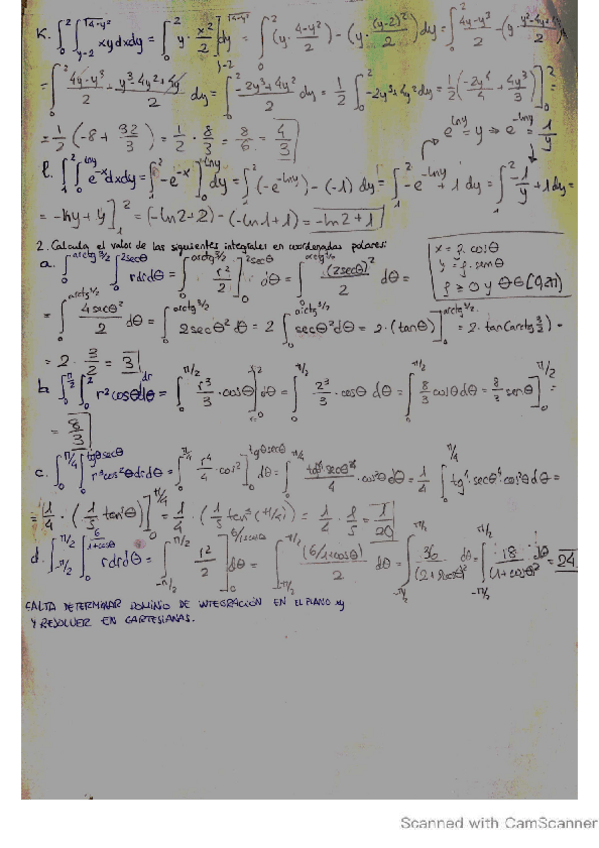 K. ∫₀² ∫_{y-2}^{√4-y²} xy dxdy = ∫₀² y · x²/2 ]_{y-2}^{√4-y²} dy = ∫₀² (y · 4-y²/2) - (y · (y-2)²/2) dy = ∫₀² 4y-y³/2 - (y ·
= ∫₀² 4y-y³/2 + y³-4y²+4y/2 dy = ∫₀² -2y³+4y²/2 dy = 1/2 ∫₀² -2y³+4y² dy = 1/2 (-2y⁴/4 + 4y³/3) ]₀² =
= 1/2 (-8 + 32/3) = 1/2 · 8/3 = 8/6 = 4/3 e^{lny} = y ⇒ e^{-lny} = 1/y
l. ∫₁² ∫₀^{lny} e^{-x} dxdy = ∫₁² -e^{-x} ]₀^{lny} dy = ∫₁² (-e^{-lny}) - (-1) dy = ∫₁² -e^{-lny} + 1 dy = ∫₁² -1/y + 1 dy =
= -lny + y ]₁² = (-ln2+2) - (-ln1+1) = -ln2 + 1
2. Calcula el valor de las siguientes integrales en coordenadas polares:
x = ρ cosθ
y = ρ · senθ
ρ ≥ 0 y θ ∈ [0,2π)
a. ∫₀^{arctg 3/2} ∫₀^{2secθ} r dr dθ = ∫₀^{arctg 3/2} r²/2 ]₀^{2secθ} dθ = ∫₀^{arctg 3/2} (2secθ)²/2 dθ =
= ∫₀^{arctg 3/2} 4secθ²/2 dθ = ∫₀^{arctg 3/2} 2secθ² dθ = 2 ∫₀^{arctg 3/2} secθ² dθ = 2 · (tanθ) ]₀^{arctg 3/2} = 2 · tan(arctg 3/2) =
= 2 · 3/2 = 3
b. ∫₀^{π/2} ∫₀² r² cosθ dr dθ = ∫₀^{π/2} r³/3 · cosθ ]₀² dθ = ∫₀^{π/2} 2³/3 · cosθ dθ = ∫₀^{π/2} 8/3 cosθ dθ = 8/3 senθ ]₀^{π/2} =
= 8/3
c. ∫₀^{π/4} ∫₀^{tgθ secθ} r³ cos²θ dr dθ = ∫₀^{π/4} r⁴/4 · cos² ]₀^{tgθ secθ} dθ = ∫₀^{π/4} tg⁴ secθ⁴/4 · cos²θ dθ = 1/4 ∫₀^{π/4} tg⁴ · secθ⁴ · cos²θ dθ =
= 1/4 · (1/5 tan⁵θ) ]₀^{π/4} = 1/4 · (1/5 tan⁵(π/4)) = 1/4 · 1/5 = 1/20
d. ∫_{-π/2}^{π/2} ∫₀^{6/1+cosθ} r dr dθ = ∫_{-π/2}^{π/2} r²/2 ]₀^{6/1+cosθ} dθ = ∫_{-π/2}^{π/2} (6/1+cosθ)²/2 dθ = ∫_{-π/2}^{π/2} 36/ dθ = ∫_{-π/2}^{π/2} 18/(1+cosθ)² dθ = 24
FALTA DETERMINAR DOMINIO DE INTEGRACIÓN EN EL PLANO xy
Y RESOLVER EN CARTESIANAS.
Scanned with CamScanner